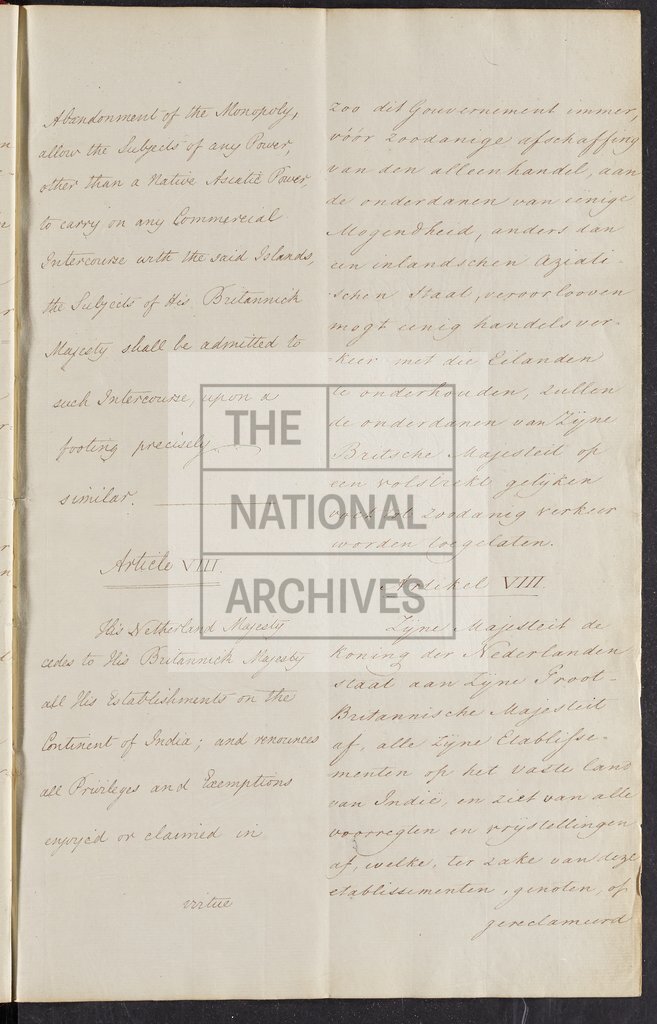 Abandonment of the Monopoly,
allow the Subjects of any Power,
other than a Native Asiatic Power,
to carry on any Commercial
Intercourse with the said Islands,
the Subjects of His Britannick
Majesty shall be admitted to
such Intercourse, upon a
footing precisely
similar.
Article VIII.
His Netherland Majesty
cedes to His Britannick Majesty
all His Establishments on the
Continent of India; and renounces
all Privileges and Exemptions
enjoyed or claimed in
virtue
zoo dit Gouvernement immer,
vóór zoodanige afschaffing
van den alleen handel, aan
de onderdanen van eenige
Mogendheid, anders dan
een inlandschen Aziati-
schen Staat, veroorlooven
mogt eenig handelsver-
keer met die Eilanden
te onderhouden, zullen
de onderdanen van Zijne
Britsche Majesteit op
een volstrekt gelijken
voet tot zoodanig verkeer
worden toegelaten.
Artikel VIII.
Zijne Majesteit de
Koning der Nederlanden
staat aan Zijne Groot-
Britannische Majesteit
af, alle Zijne Etablisse-
menten op het vaste land
van Indië, en ziet van alle
voorregten en vrijstellingen
af, welke, ter zake van deze
etablissementen, genoten, of
gereclameerd
THE
NATIONAL
ARCHIVES